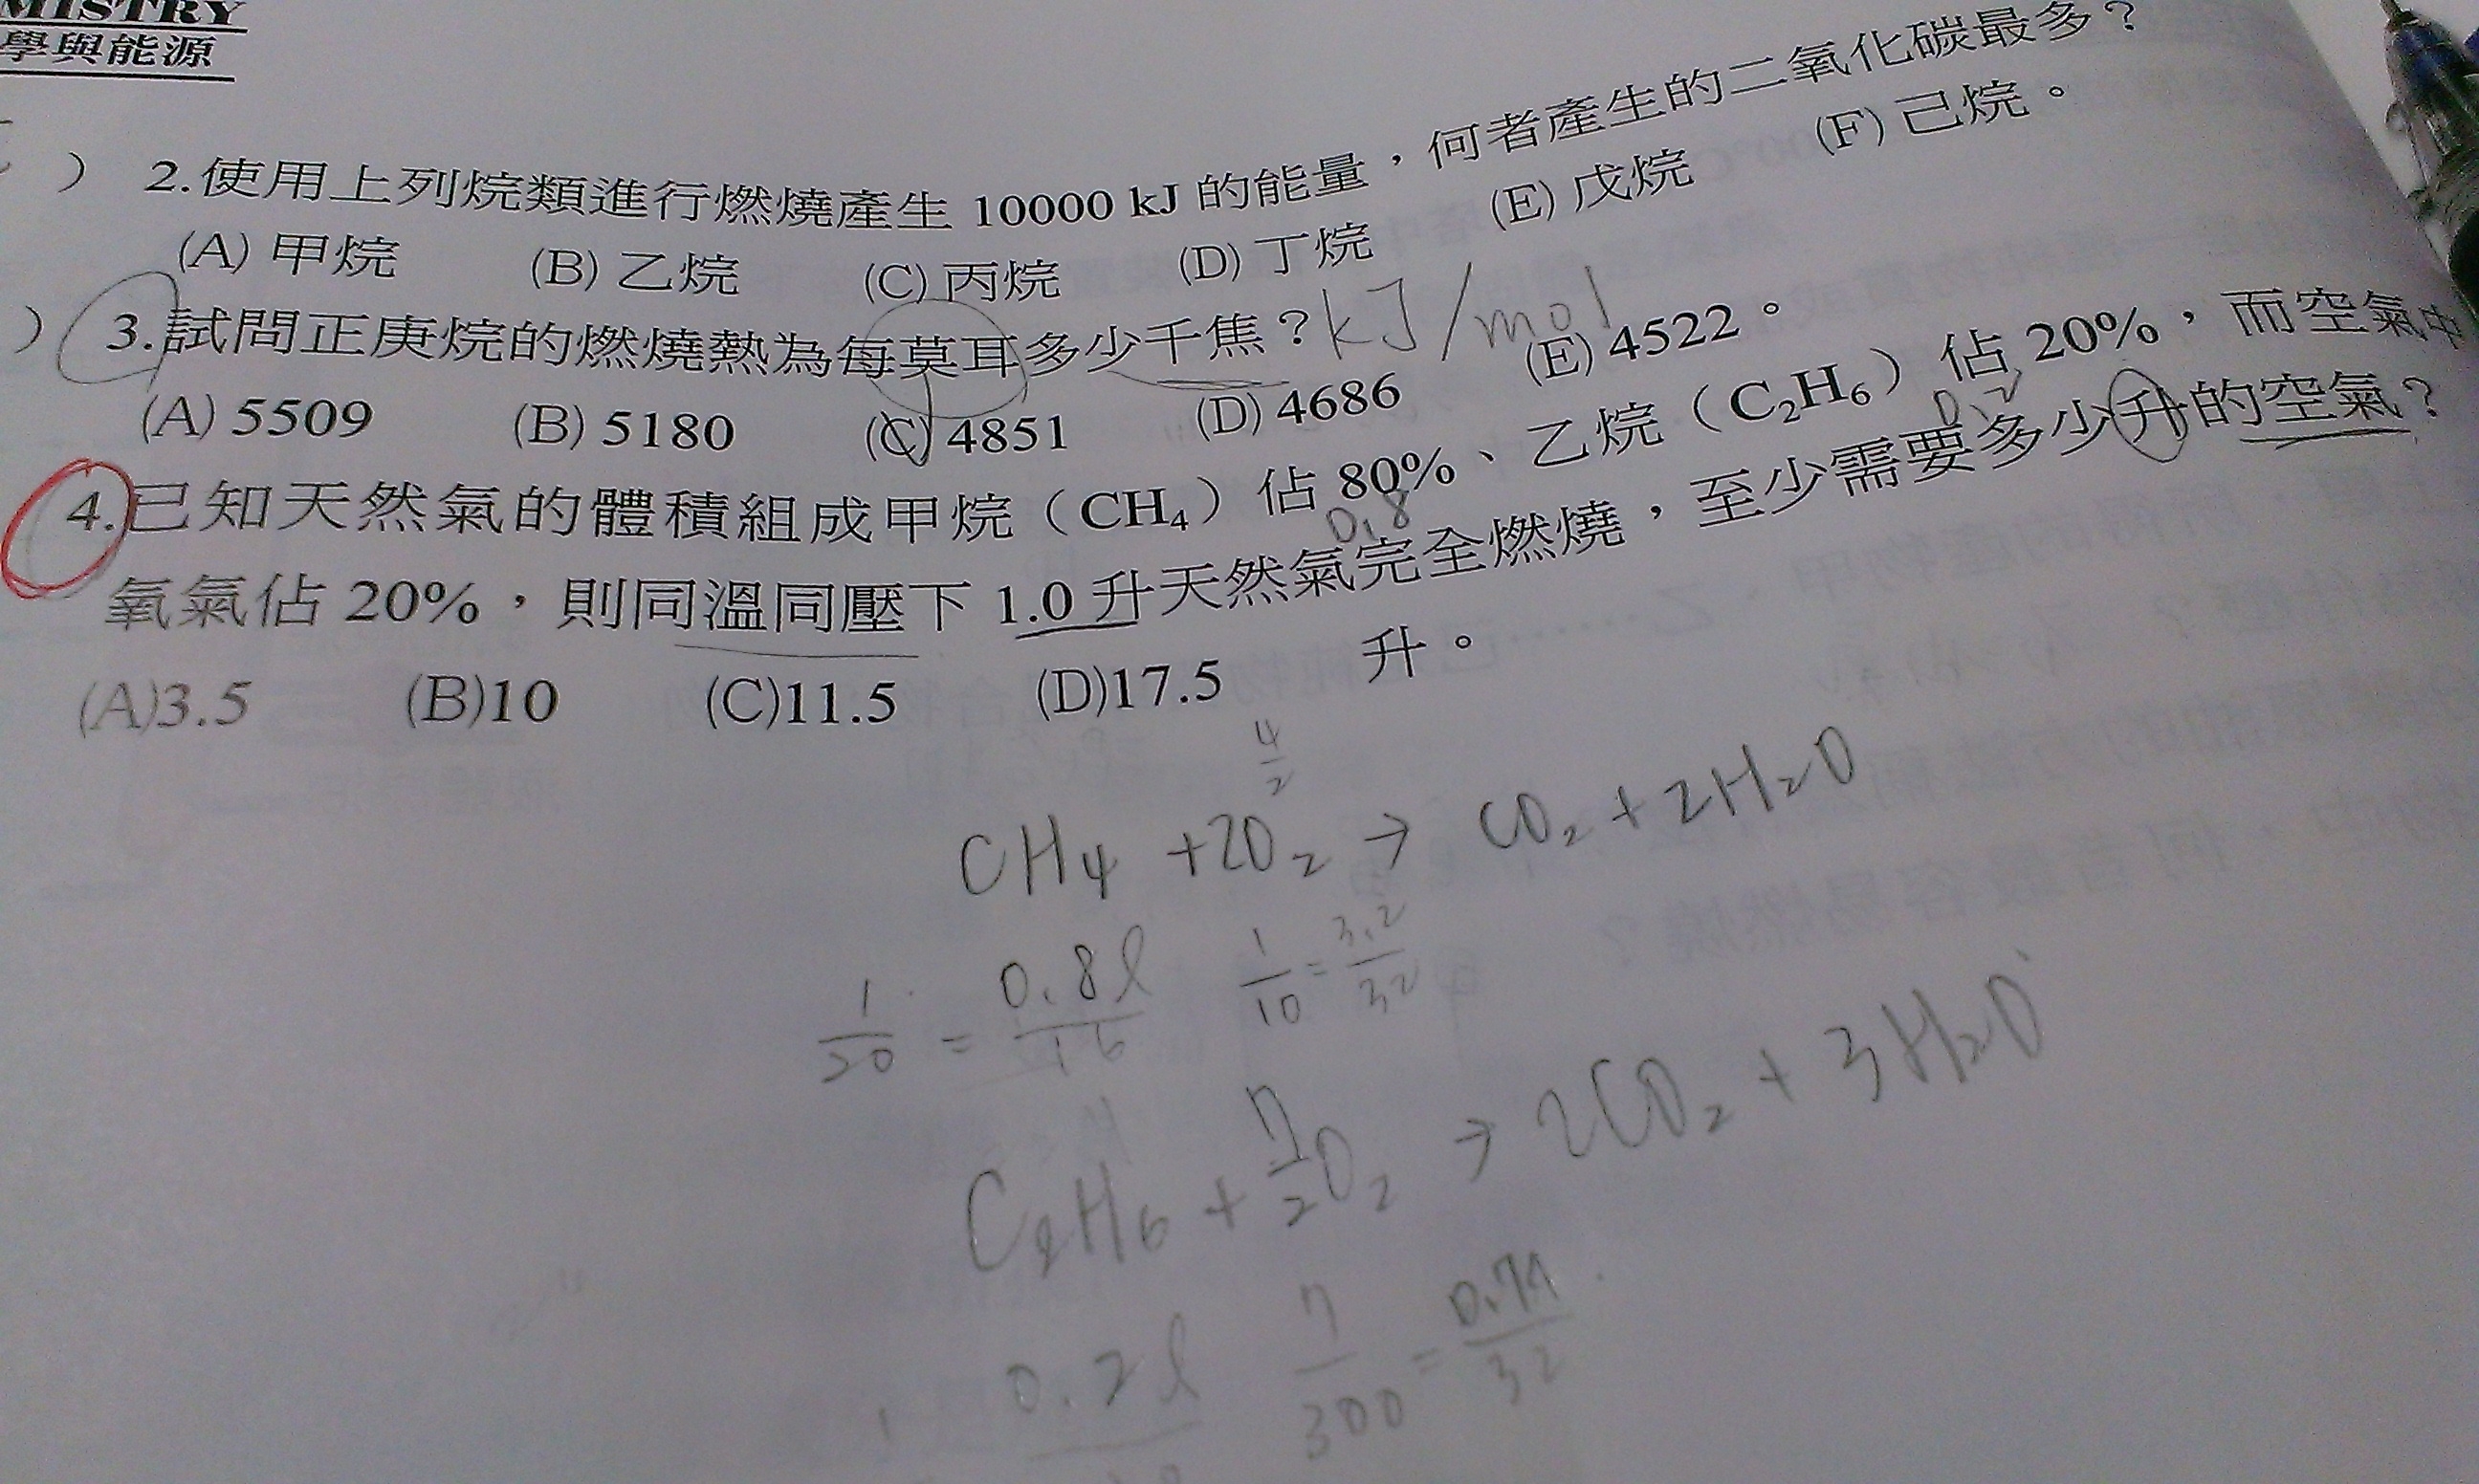 MISTRY
學與能源
) 2.使用上列烷類進行燃燒產生 10000 kJ 的能量，何者產生的二氧化碳最多？
(A) 甲烷 (B) 乙烷 (C) 丙烷 (D) 丁烷 (E) 戊烷 (F) 己烷。
) 3.試問正庚烷的燃燒熱為每莫耳多少千焦？kJ/mol
(A) 5509 (B) 5180 (C) 4851 (D) 4686 (E) 4522。
4.已知天然氣的體積組成甲烷（CH₄）佔 80%、乙烷（C₂H₆）佔 20%，而空氣中
0.8 0.2
氧氣佔 20%，則同溫同壓下 1.0 升天然氣完全燃燒，至少需要多少升的空氣？
(A)3.5 (B)10 (C)11.5 (D)17.5 升。
4/2
CH₄ +2O₂ → CO₂ + 2H₂O
1/20 = 0.8l/16 1/10 = 3.2/32
C₂H₆ + 7/2 O₂ → 2CO₂ + 3H₂O
0.2l 7/300 = 0.74/32